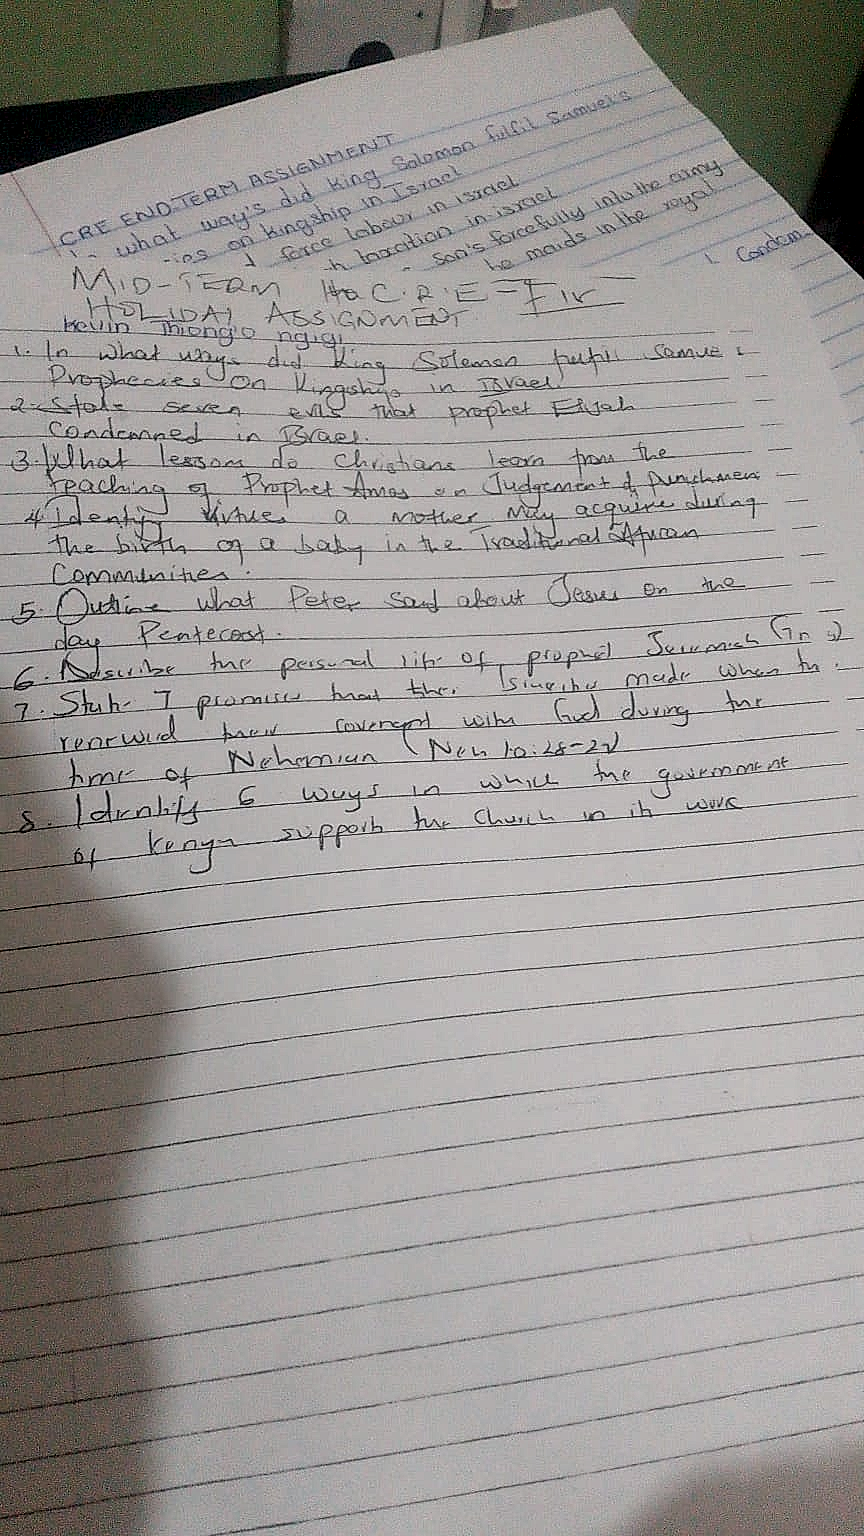 CRE END-TERM ASSIGNMENT
1. what way's did King Solomon fulfil Samuel's
on kingship in Israel
force labour in israel
taxation in israel
son's forcefully into the army
be maids in the royal
1. Condem
MID-TERM C.R.E
HOLIDAY ASSIGNMENT.
Kevin Thiong'o ngigi
1. In what ways did King Solomon fulfil Samue
Prophecies on Kingship in Israel
2. State seven evils that prophet Elijah
condemned in Israel.
3. What lessons do Christians learn from the
teaching of Prophet Amos on Judgement & Punishment
4. Identify virtues a mother may acquire during
the birth of a baby in the Traditional African
Communities.
5. Outline what Peter said about Jesus on the
day Pentecost.
6. Describe the personal life of prophet Jeremiah
7. State 7 promises that the Israelites made when the
renewed their covenant with God during the
time of Nehemiah (Neh 10:28-
8. Identify 6 ways in which the government
of Kenya support the church in its work